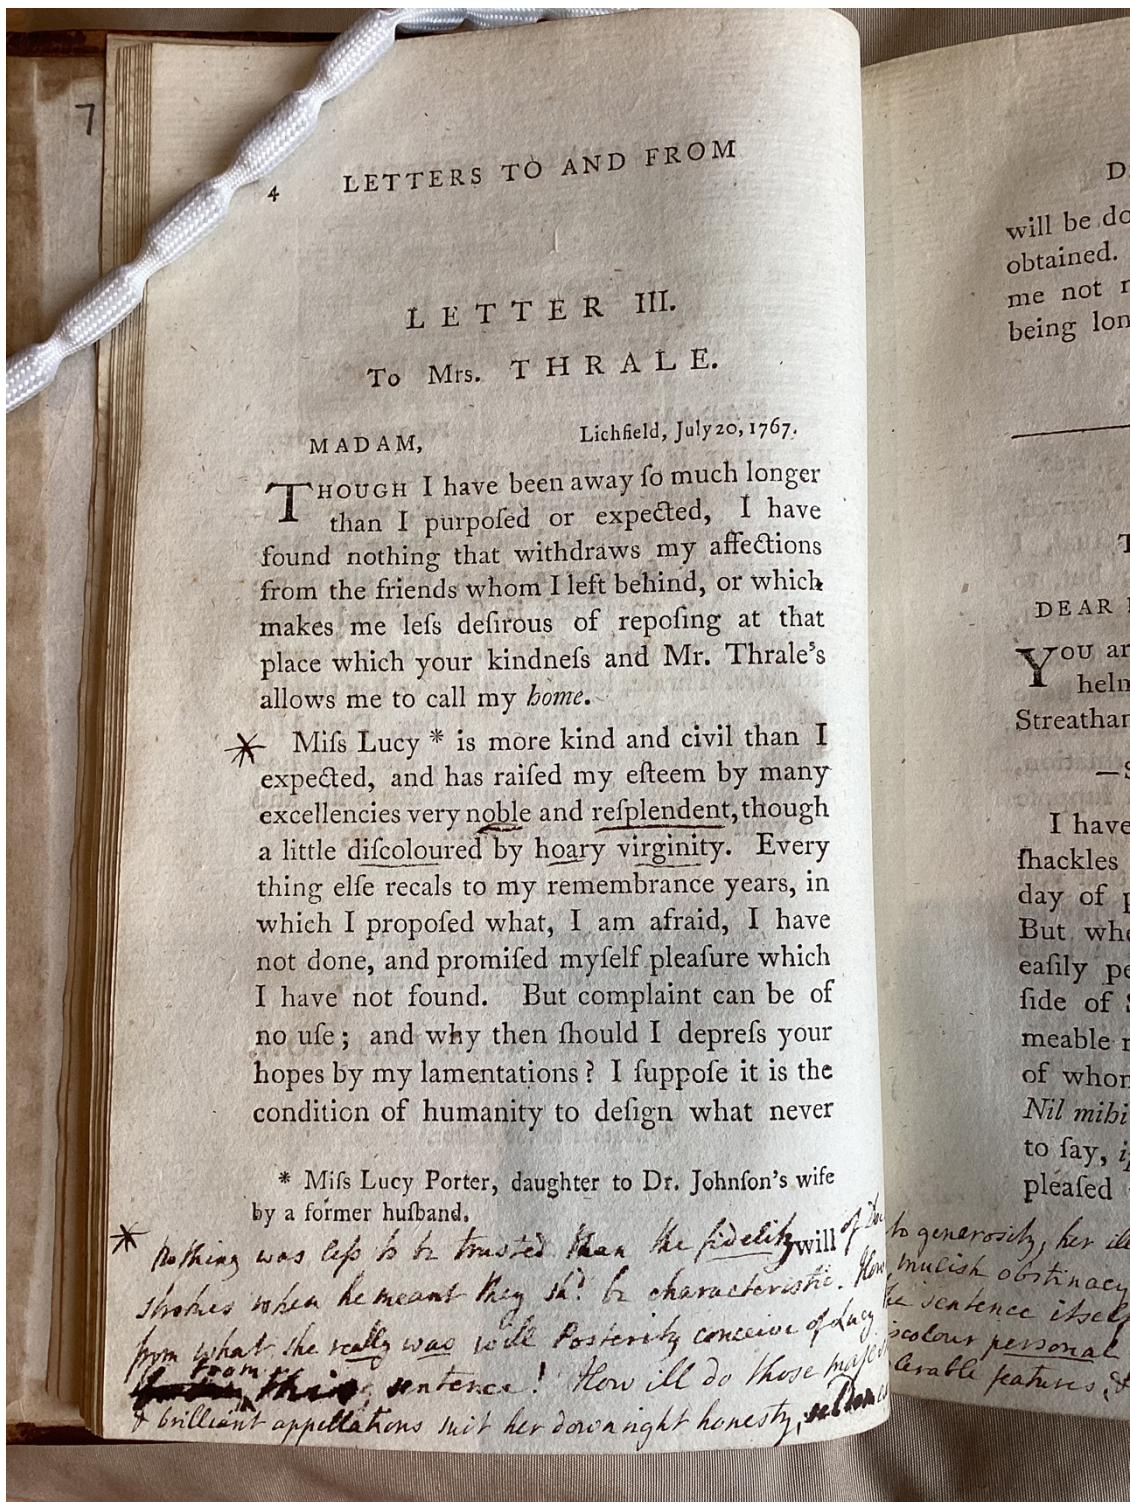 7
4 LETTERS TO AND FROM
LETTER III.
To Mrs. THRALE.
MADAM, Lichfield, July 20, 1767.
THOUGH I have been away ſo much longer
than I purpoſed or expected, I have
found nothing that withdraws my affections
from the friends whom I left behind, or which
makes me leſs deſirous of repoſing at that
place which your kindneſs and Mr. Thrale's
allows me to call my home.
* Miſs Lucy * is more kind and civil than I
expected, and has raiſed my eſteem by many
excellencies very noble and reſplendent, though
a little diſcoloured by hoary virginity. Every
thing elſe recals to my remembrance years, in
which I propoſed what, I am afraid, I have
not done, and promiſed myſelf pleaſure which
I have not found. But complaint can be of
no uſe; and why then ſhould I depreſs your
hopes by my lamentations? I ſuppoſe it is the
condition of humanity to deſign what never
* Miſs Lucy Porter, daughter to Dr. Johnſon's wife
by a former huſband.
will
* Nothing was leſs to be trusted than the fidelity of
strokes when he meant they shd. be characteristic. How
from what she really was will Posterity conceive of Lucy
from this sentence! How ill do those
& brilliant appellations suit her downright honesty, seldom
will be
obtained.
me not
being
DEAR
YOU
Streatham
I have
ſhackles
day of
But
eaſily
ſide of
meable
of whom
Nil mihi
to ſay,
pleaſed
to generosity, her
mulish obstinacy
the sentence itself
personal
features, &